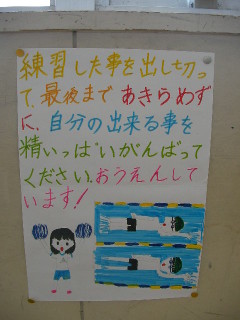 練習した事を出し切っ
て、最後まであきらめず
に、自分の出来る事を
精いっぱいがんばって
ください。おうえんして
います!